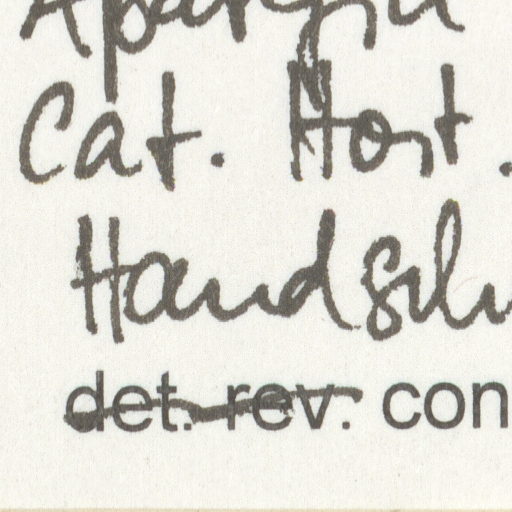 Apargia
Cat. Hort.
Handschr
det. rev. con